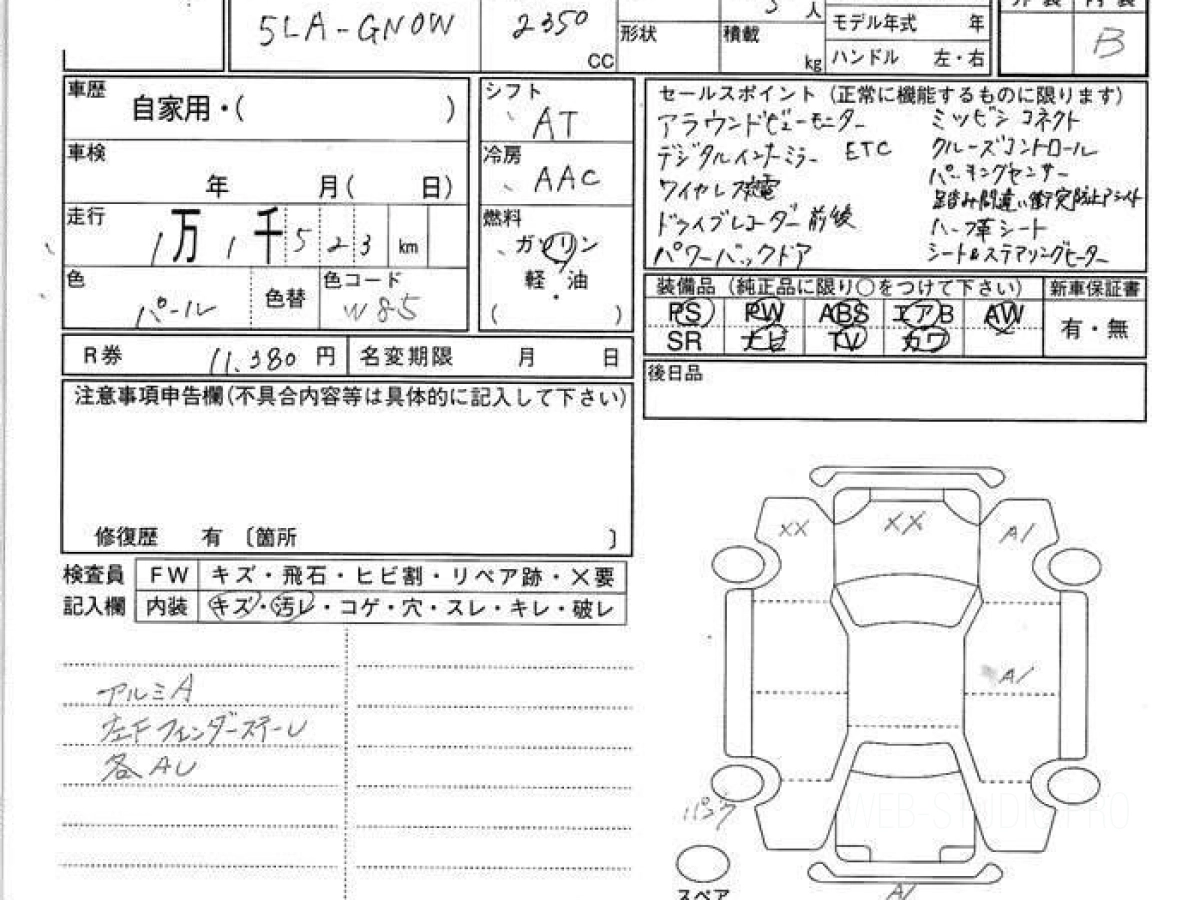 5LA-GN0W
2350
CC
形状
積載
kg
5
人
モデル年式 年
ハンドル 左・右
外装 内装
B
車歴
自家用・( )
車検
年 月( 日)
走行
1万1千523 km
色
パール
色替
色コード
W85
シフト
AT
冷房
AAC
燃料
ガソリン
軽・油
( )
セールスポイント (正常に機能するものに限ります)
アラウンドビューモニター
デジタルインナーミラー ETC
ワイヤレス充電
ドライブレコーダー前後
パワーバックドア
ミツビシコネクト
クルーズコントロール
パーキングセンサー
踏み間違い衝突防止アシスト
ハーフ革シート
シート&ステアリングヒーター
装備品 (純正品に限り○をつけて下さい)
新車保証書
PS PW ABS エアB AW
SR ナビ TV カワ
有・無
R券 11,380 円
名変期限 月 日
後日品
注意事項申告欄(不具合内容等は具体的に記入して下さい)
修復歴 有 〔箇所 〕
検査員
記入欄
FW キズ・飛石・ヒビ割・リペア跡・×要
内装 キズ・汚レ・コゲ・穴・スレ・キレ・破レ
アルミA
左FフェンダーステーU
各AU
XX
XX
A1
A1
パンク
スペア
A1
WEB-STUDIO.PRO